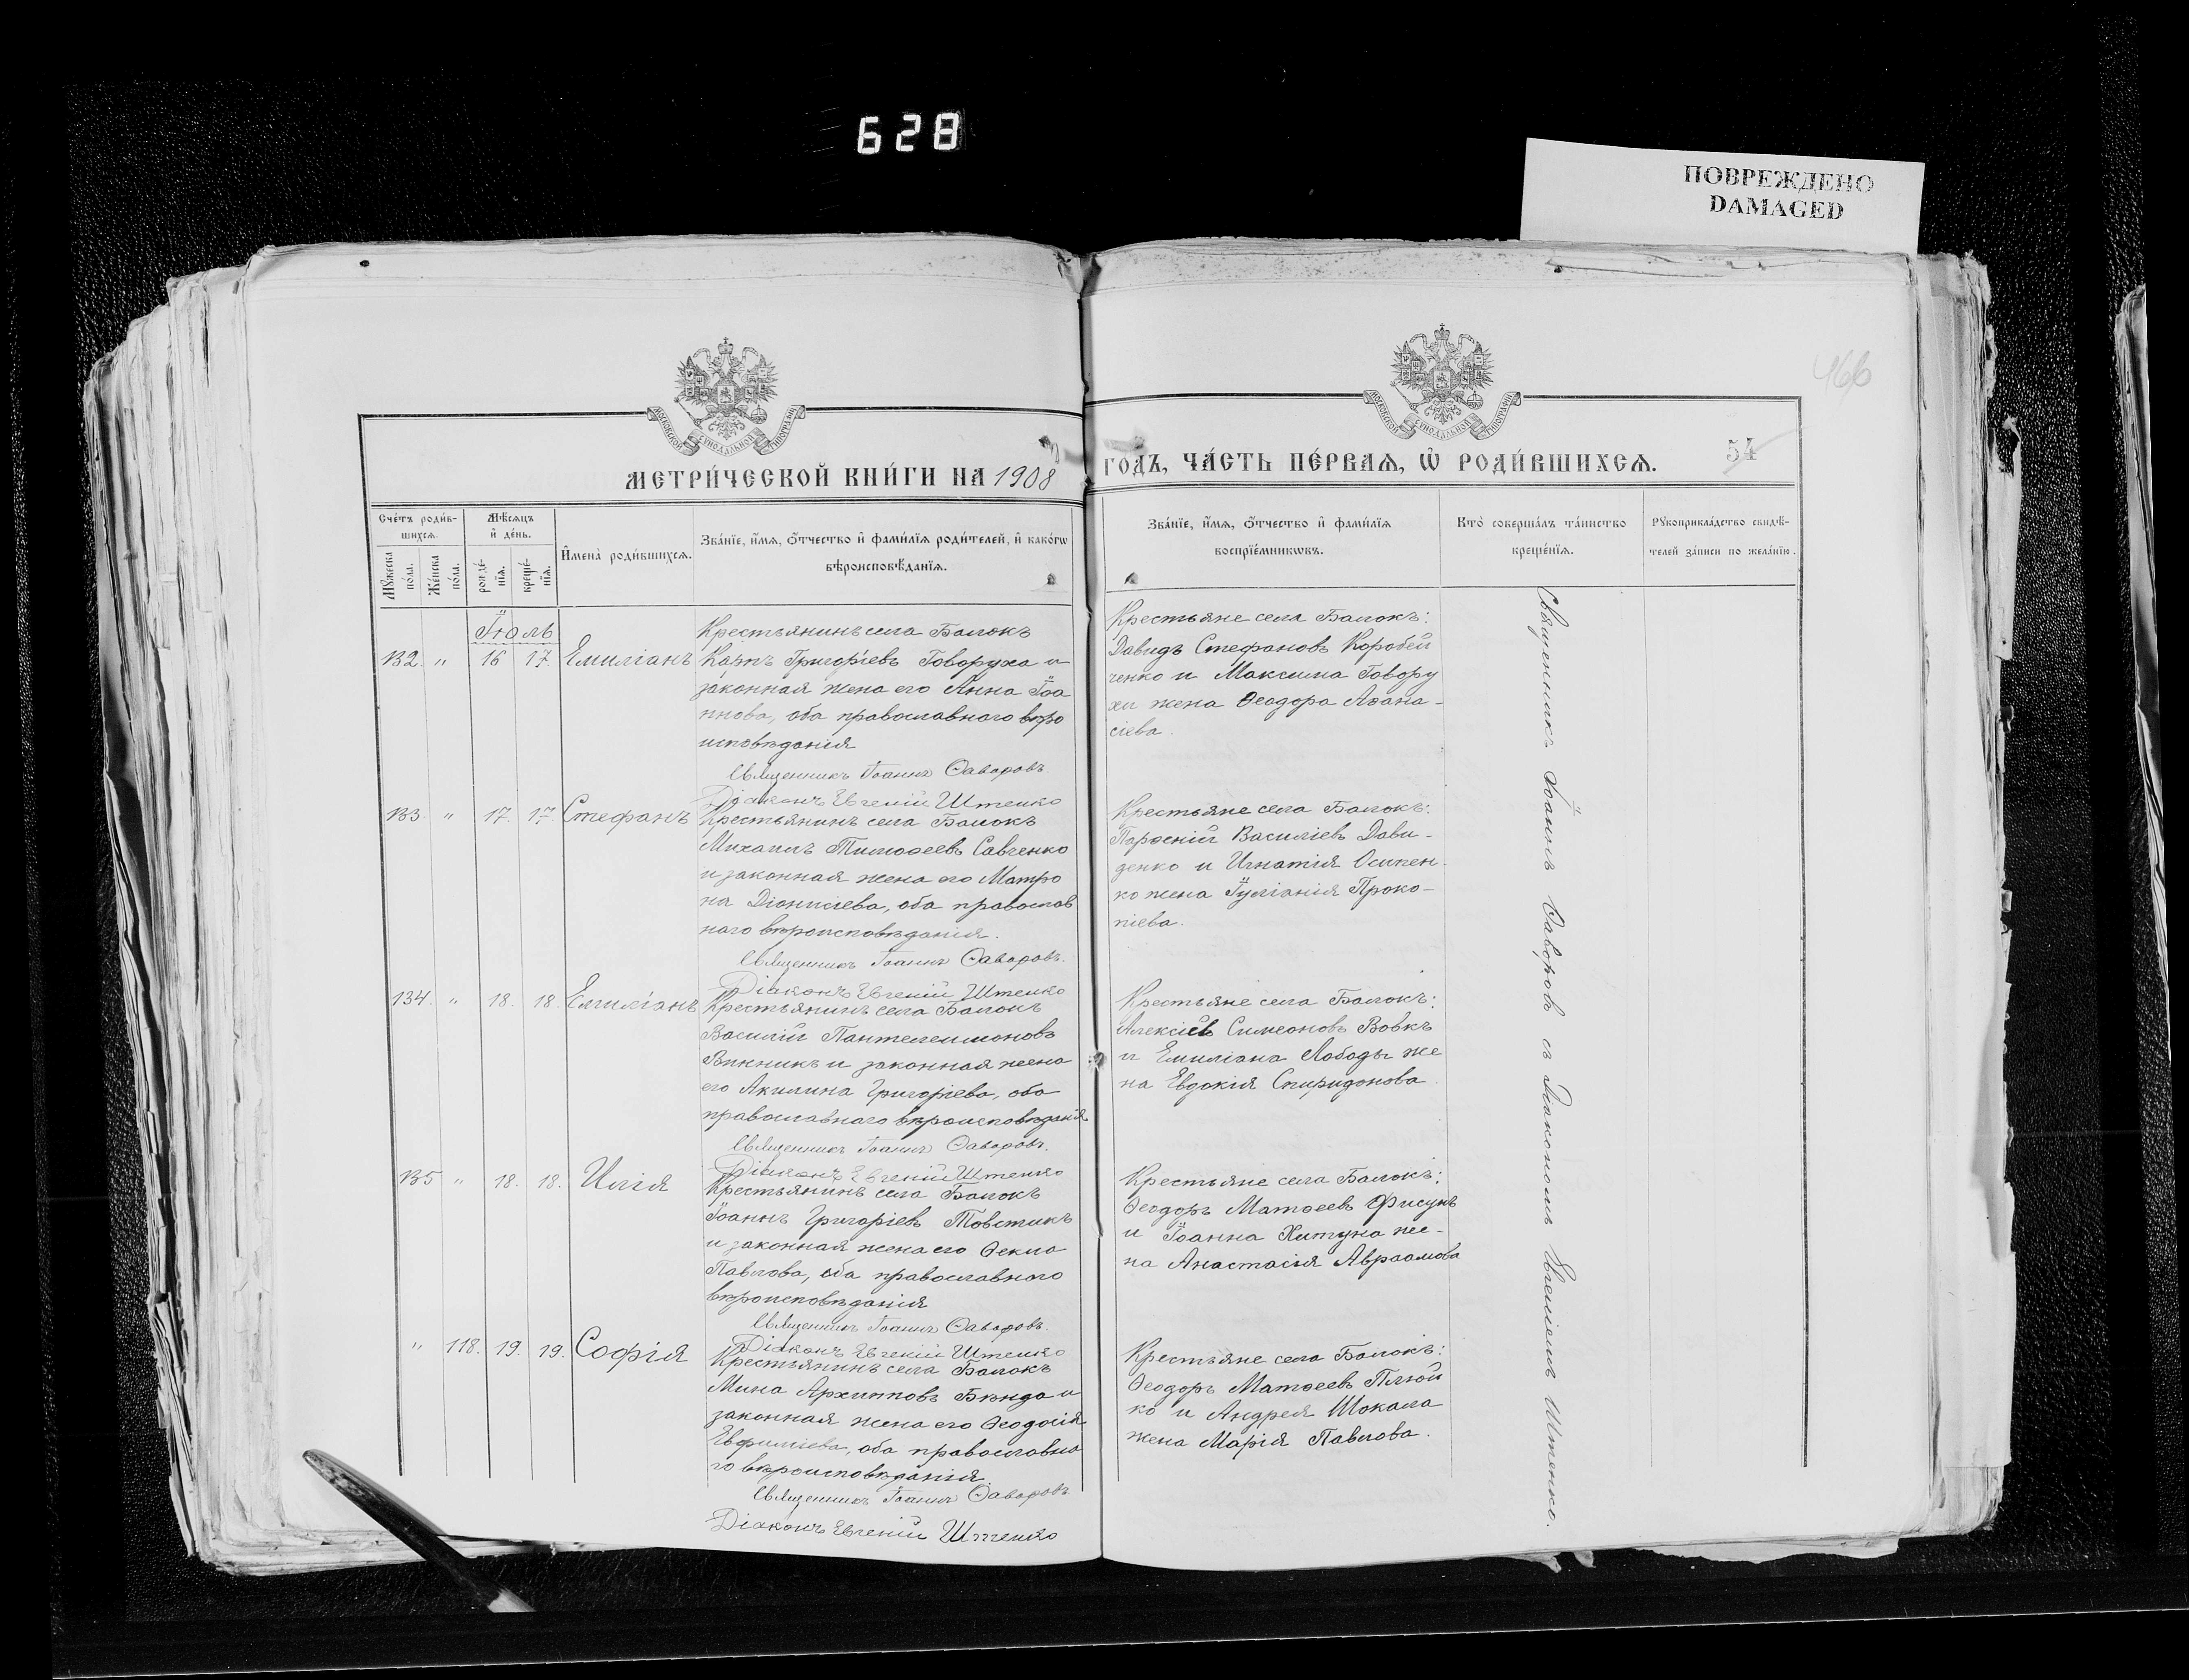 628
ПОВРЕЖДЕНО
DAMAGED
466
МОСКОВСКОЙ СѴНОДАЛЬНОЙ ТИПОГРАФІИ
МОСКОВСКОЙ СѴНОДАЛЬНОЙ ТИПОГРАФІИ
МЕТРИ́ЧЕСКОЙ КНИ́ГИ НА 1908 ГОДЪ, ЧА́СТЬ ПЕ́РВАѦ, Ѡ҆ РОДИ́ВШИХСѦ.
54
Сче́тъ роди́в-
шихсѧ.
Мѣ́сѧцъ
и҆ де́нь.
Мꙋ́жеска
по́ла.
Же́нска
по́ла.
рожде́-
нїѧ.
креще́-
нїѧ.
И҆мена̀ роди́вшихсѧ.
Зва́нїе, и҆́мѧ, ѻ҆́тчество и҆ фами́лїѧ роди́телей, и҆ како́гѡ
вѣроисповѣ́данїѧ.
Зва́нїе, и҆́мѧ, ѻ҆́тчество и҆ фами́лїѧ
воспрїе́мникѡвъ.
Кто̀ соверша́лъ та́инство
креще́нїѧ.
Рꙋкоприкла́дство свидѣ́-
телей за́писи по жела́нїю.
Іюль
132. " 16 17. Емиліанъ
Крестьянинъ села Балокъ
Карпъ Григоріевъ Говоруха и
законная жена его Анна Іоа
ннова, оба православнаго вѣро
исповѣданія
Священникъ Іоаннъ Фаворовъ.
Діаконъ Евгеній Штепко
Крестьяне села Балокъ:
Давидъ Стефановъ Коробей
ченко и Максима Говору
хи жена Ѳеодора Аѳана-
сіева.
133. " 17. 17. Стефанъ
Крестьянинъ села Балокъ
Михаилъ Тимоѳеевъ Савченко
и законная жена его Матро
на Діонисіева, оба православ
наго вѣроисповѣданія.
Священникъ Іоаннъ Фаворовъ.
Діаконъ Евгеній Штепко
Крестьяне села Балокъ:
Василіевъ Дави-
денко и Игнатія Осипен-
ко жена Іуліанія Проко-
піева.
134. " 18. 18. Емиліанъ
Крестьянинъ села Балокъ
Василій Пантелеимоновъ
Винникъ и законная жена
его Акилина Григоріева, оба
православнаго вѣроисповѣданія
Священникъ Іоаннъ Фаворовъ.
Діаконъ Евгеній Штепко
Крестьяне села Балокъ:
Алексѣй Симеоновъ Вовкъ
и Емиліана Лободы же
на Евдокія Спиридонова.
135 " 18. 18. Илія
Крестьянинъ села Балокъ
Іоаннъ Григоріевъ Товстикъ
и законная жена его Ѳекла
Павлова, оба православнаго
вѣроисповѣданія
Священникъ Іоаннъ Фаворовъ.
Діаконъ Евгеній Штепко
Крестьяне села Балокъ:
Ѳеодоръ Матѳеевъ Фисунъ
и Іоанна Хитуна же-
на Анастасія Авраамова
" 118. 19. 19. Софія
Крестьянинъ села Балокъ
Мина Архипповъ и
законная жена его Ѳеодосія
Евфиміева, оба православна
го вѣроисповѣданія
Священникъ Іоаннъ Фаворовъ
Діаконъ Евгеній Штепко
Крестьяне села Балокъ:
Ѳеодоръ Матѳеевъ Плюй
ко и Андрея Шокала
жена Марія Павлова.
Священникъ Іоаннъ Фаворовъ съ Діакономъ Евгеніемъ Штепко.